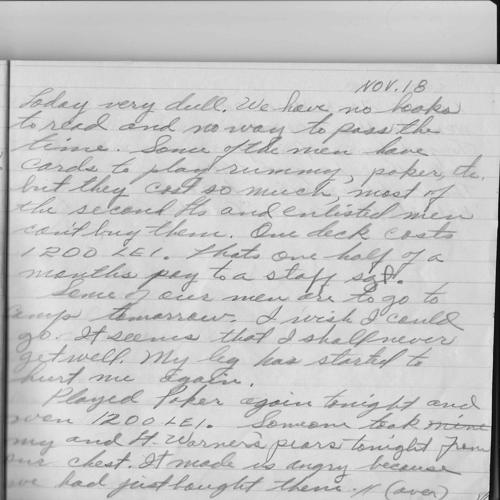 NOV. 18
Today very dull. We have no books
to read and no way to pass the
time. Some of the men have
cards to play rummy, poker, etc.
but they cost so much, most of
the second Lts and enlisted men
can't buy them. One deck costs
1200 LEI. Thats one half of a
months pay to a staff sgt.
Some of our men are to go to
camp tomorrow. I wish I could
go. It seems that I shall never
get well. My leg has started to
hurt me again.
Played Poker again tonight and
won 1200 LEI. Someone took mine
my and Lt. Warner's pears tonight from
our chest. It made us angry because
we had just bought them. // (over)